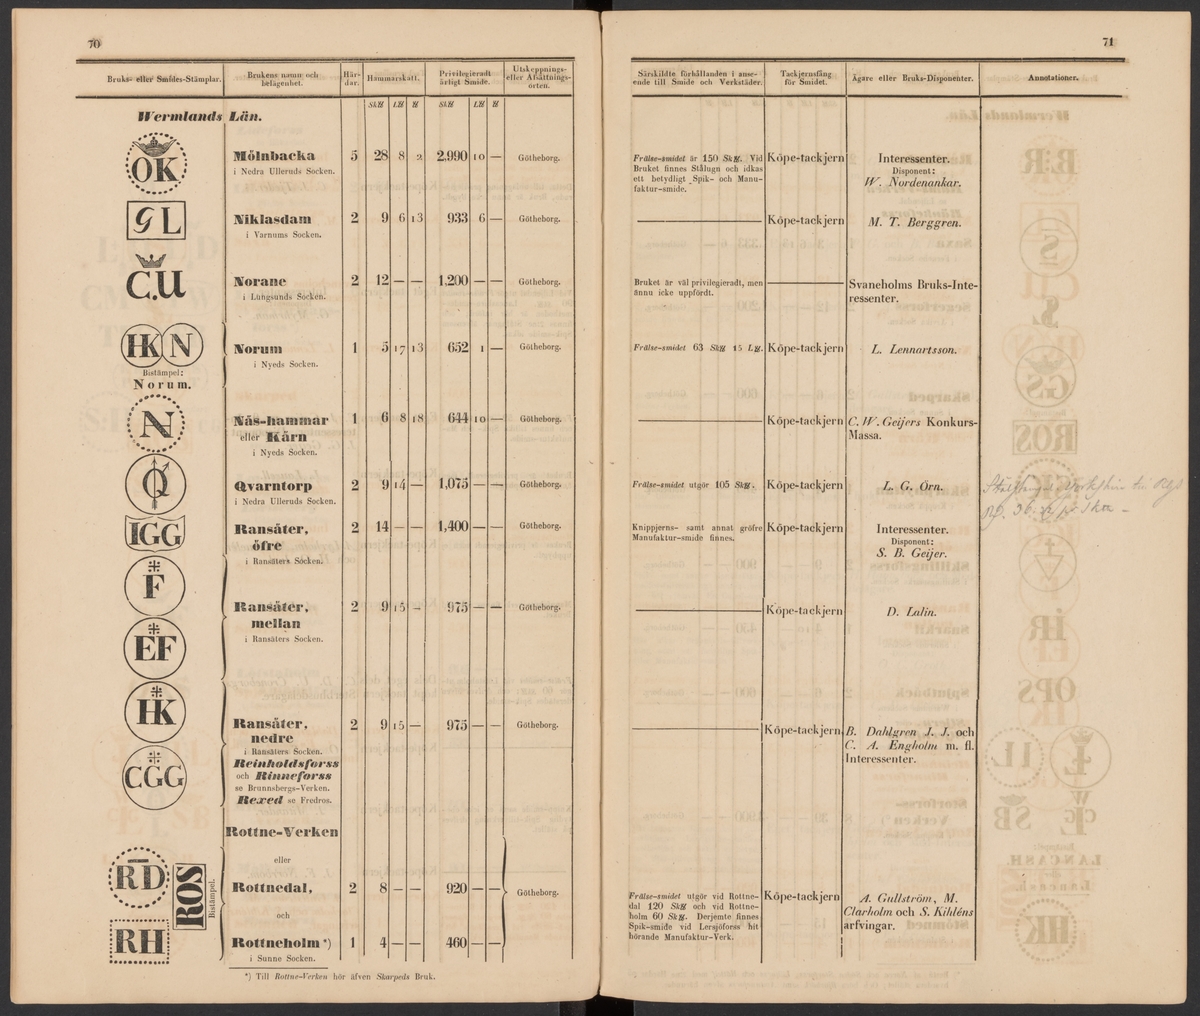 70
Bruks- eller Smides-Stämplar.
Brukens namn och belägenhet.
Här-dar.
Hammarskatt.
Privilegieradt årligt Smide.
Utskeppnings- eller Afsättnings-orten.
Sk℔ L℔ ℔ Sk℔ L℔ ℔
Wermlands Län.
OK
Mölnbacka 5 28 8 2 2,990 10 — Götheborg.
i Nedra Ulleruds Socken.
GL
Niklasdam 2 9 6 13 933 6 — Götheborg.
i Varnums Socken.
C.U
Norane 2 12 — — 1,200 — — Götheborg.
i Lungsunds Socken.
HK N
Bistämpel:
Norum.
Norum 1 5 17 13 652 1 — Götheborg.
i Nyeds Socken.
N
Näs-hammar 1 6 8 18 644 10 — Götheborg.
eller Kärn
i Nyeds Socken.
Q
Qvarntorp 2 9 14 — 1,075 — — Götheborg.
i Nedra Ulleruds Socken.
IGG
Ransäter, 2 14 — — 1,400 — — Götheborg.
öfre
i Ransäters Socken.
F
EF
Ransäter, 2 9 15 — 975 — — Götheborg.
mellan
i Ransäters Socken.
HK
CGG
Ransäter, 2 9 15 — 975 — — Götheborg.
nedre
i Ransäters Socken.
Reinholdsforss
och Rinneforss
se Brunnsbergs-Verken.
Rexed se Fredros.
Rottne-Verken
eller
RD
ROS
Bistämpel.
Rottnedal, 2 8 — — 920 — — Götheborg.
och
RH
Rottneholm *) 1 4 — — 460 — —
i Sunne Socken.
*) Till Rottne-Verken hör äfven Skarpeds Bruk.
71
Särskildte förhållanden i anse-
ende till Smide och Verkstäder.
Tackjernsfång
för Smidet.
Ägare eller Bruks-Disponenter.
Annotationer.
Frälse-smidet är 150 Sk℔. Vid
Bruket finnes Stålugn och idkas
ett betydligt Spik- och Manu-
faktur-smide.
Köpe-tackjern
Interessenter.
Disponent:
W. Nordenankar.
Köpe-tackjern M. T. Berggren.
Bruket är väl privilegieradt, men
ännu icke uppfördt.
Svaneholms Bruks-Inte-
ressenter.
Frälse-smidet 63 Sk℔ 15 L℔. Köpe-tackjern L. Lennartsson.
Köpe-tackjern C. W. Geijers Konkurs-
Massa.
Frälse-smidet utgör 105 Sk℔. Köpe-tackjern L. G. Örn.
Knippjerns- samt annat gröfre
Manufaktur-smide finnes.
Köpe-tackjern
Interessenter.
Disponent:
S. B. Geijer.
Köpe-tackjern D. Lalin.
Köpe-tackjern B. Dahlgren J. J. och
C. A. Engholm m. fl.
Interessenter.
Frälse-smidet utgör vid Rottne-
dal 120 Sk℔ och vid Rottne-
holm 60 Sk℔. Derjemte finnes
Spik-smide vid Lersjöforss hit
hörande Manufaktur-Verk.
Köpe-tackjern
A. Gullström, M.
Clarholm och S. Kihléns
arfvingar.